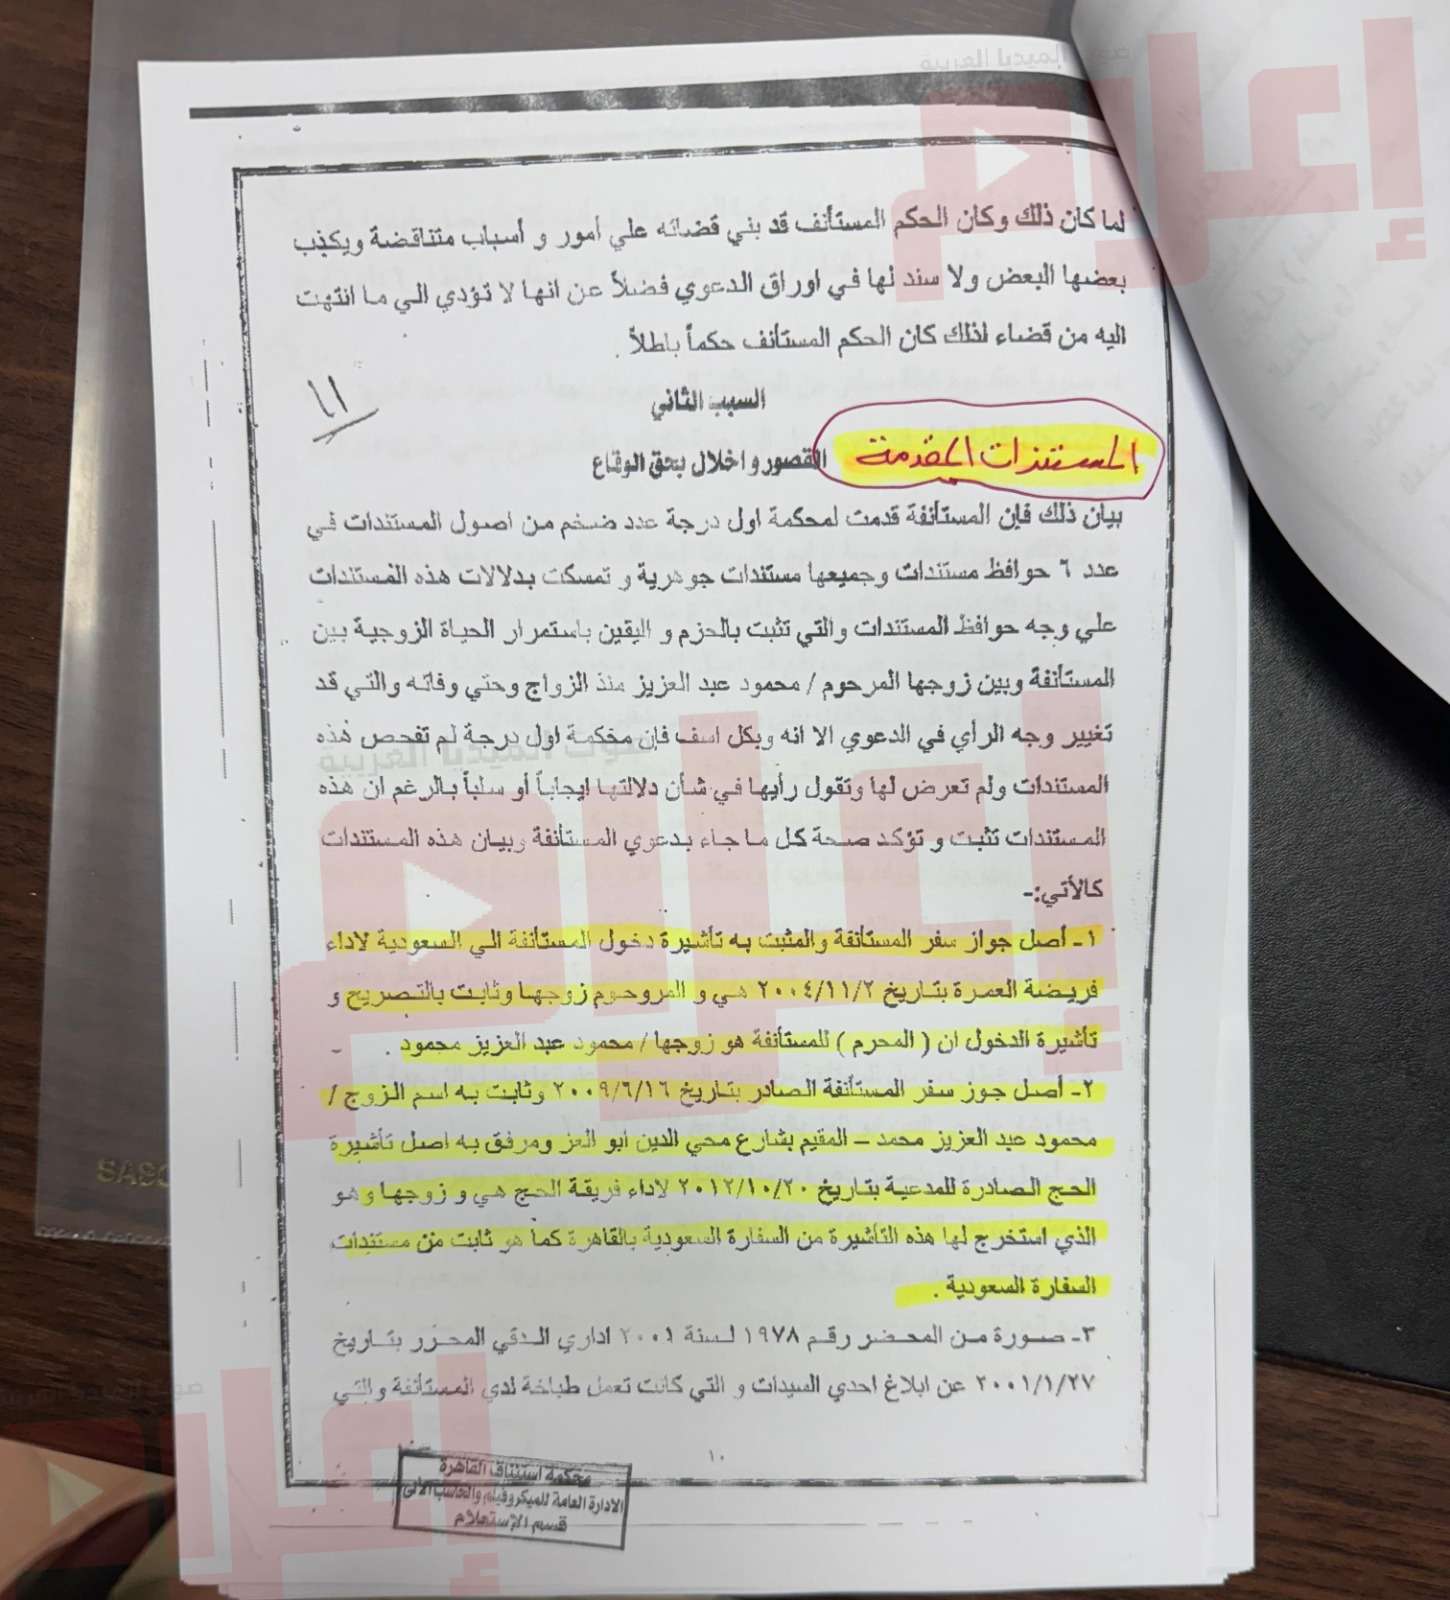 لما كان ذلك وكان الحكم المستأنف قد بني قضائه علي أمور و أسباب متناقضة ويكذب
بعضها البعض ولا سند لها في اوراق الدعوي فضلاً عن انها لا تؤدي الي ما انتهت
اليه من قضاء لذلك كان الحكم المستأنف حكماً باطلاً .
١١
السبب الثاني
المستندات المقدمة
القصور واخلال بحق الوفاع
بيان ذلك فإن المستأنفة قدمت لمحكمة اول درجة عدد ضخم من اصول المستندات في
عدد ٦ حوافظ مستندات وجميعها مستندات جوهرية و تمسكت بدلالات هذه المستندات
علي وجه حوافظ المستندات والتي تثبت بالحزم و اليقين باستمرار الحياة الزوجية بين
المستأنفة وبين زوجها المرحوم / محمود عبد العزيز منذ الزواج وحتي وفاته والتي قد
تغيير وجه الرأي في الدعوي الا انه وبكل اسف فإن محكمة اول درجة لم تفحص هذه
المستندات ولم تعرض لها وتقول رأيها في شأن دلالتها إيجاباً أو سلباً بالرغم ان هذه
المستندات تثبت و تؤكد صحة كل ما جاء بدعوي المستأنفة وبيان هذه المستندات
كالأتي:-
١- أصل جواز سفر المستأنفة والمثبت به تأشيرة دخول المستأنفة الي السعودية لاداء
فريضة العمرة بتاريخ ٢٠٠٤/١١/٢ هي و المروحوم زوجها وثابت بالتصريح و
تأشيرة الدخول ان ( المحرم ) للمستأنفة هو زوجها / محمود عبد العزيز محمود .
٢- أصل جوز سفر المستأنفة الصادر بتاريخ ٢٠٠٩/٦/١٦ وثابت به اسم الزوج /
محمود عبد العزيز محمد – المقيم بشارع محي الدين ابو العز ومرفق به اصل تأشيرة
الحج الصادرة للمدعية بتاريخ ٢٠١٢/١٠/٢٠ لاداء فريقة الحج هي و زوجها وهو
الذي استخرج لها هذه التأشيرة من السفارة السعودية بالقاهرة كما هو ثابت من مستندات
السفارة السعودية .
٣- صورة من المحضر رقم ١٩٧٨ لسنة ٢٠٠١ اداري الدقي المحرر بتاريخ
٢٠٠١/١/٢٧ عن ابلاغ احدي السيدات و التي كانت تعمل طباخة لدي المستأنفة والتي
١٠
محكمة استئناف القاهرة
الادارة العامة للميكروفيلم والحاسب الالى
قسم الإستعلام
إعلام
صوت الميديا العربية